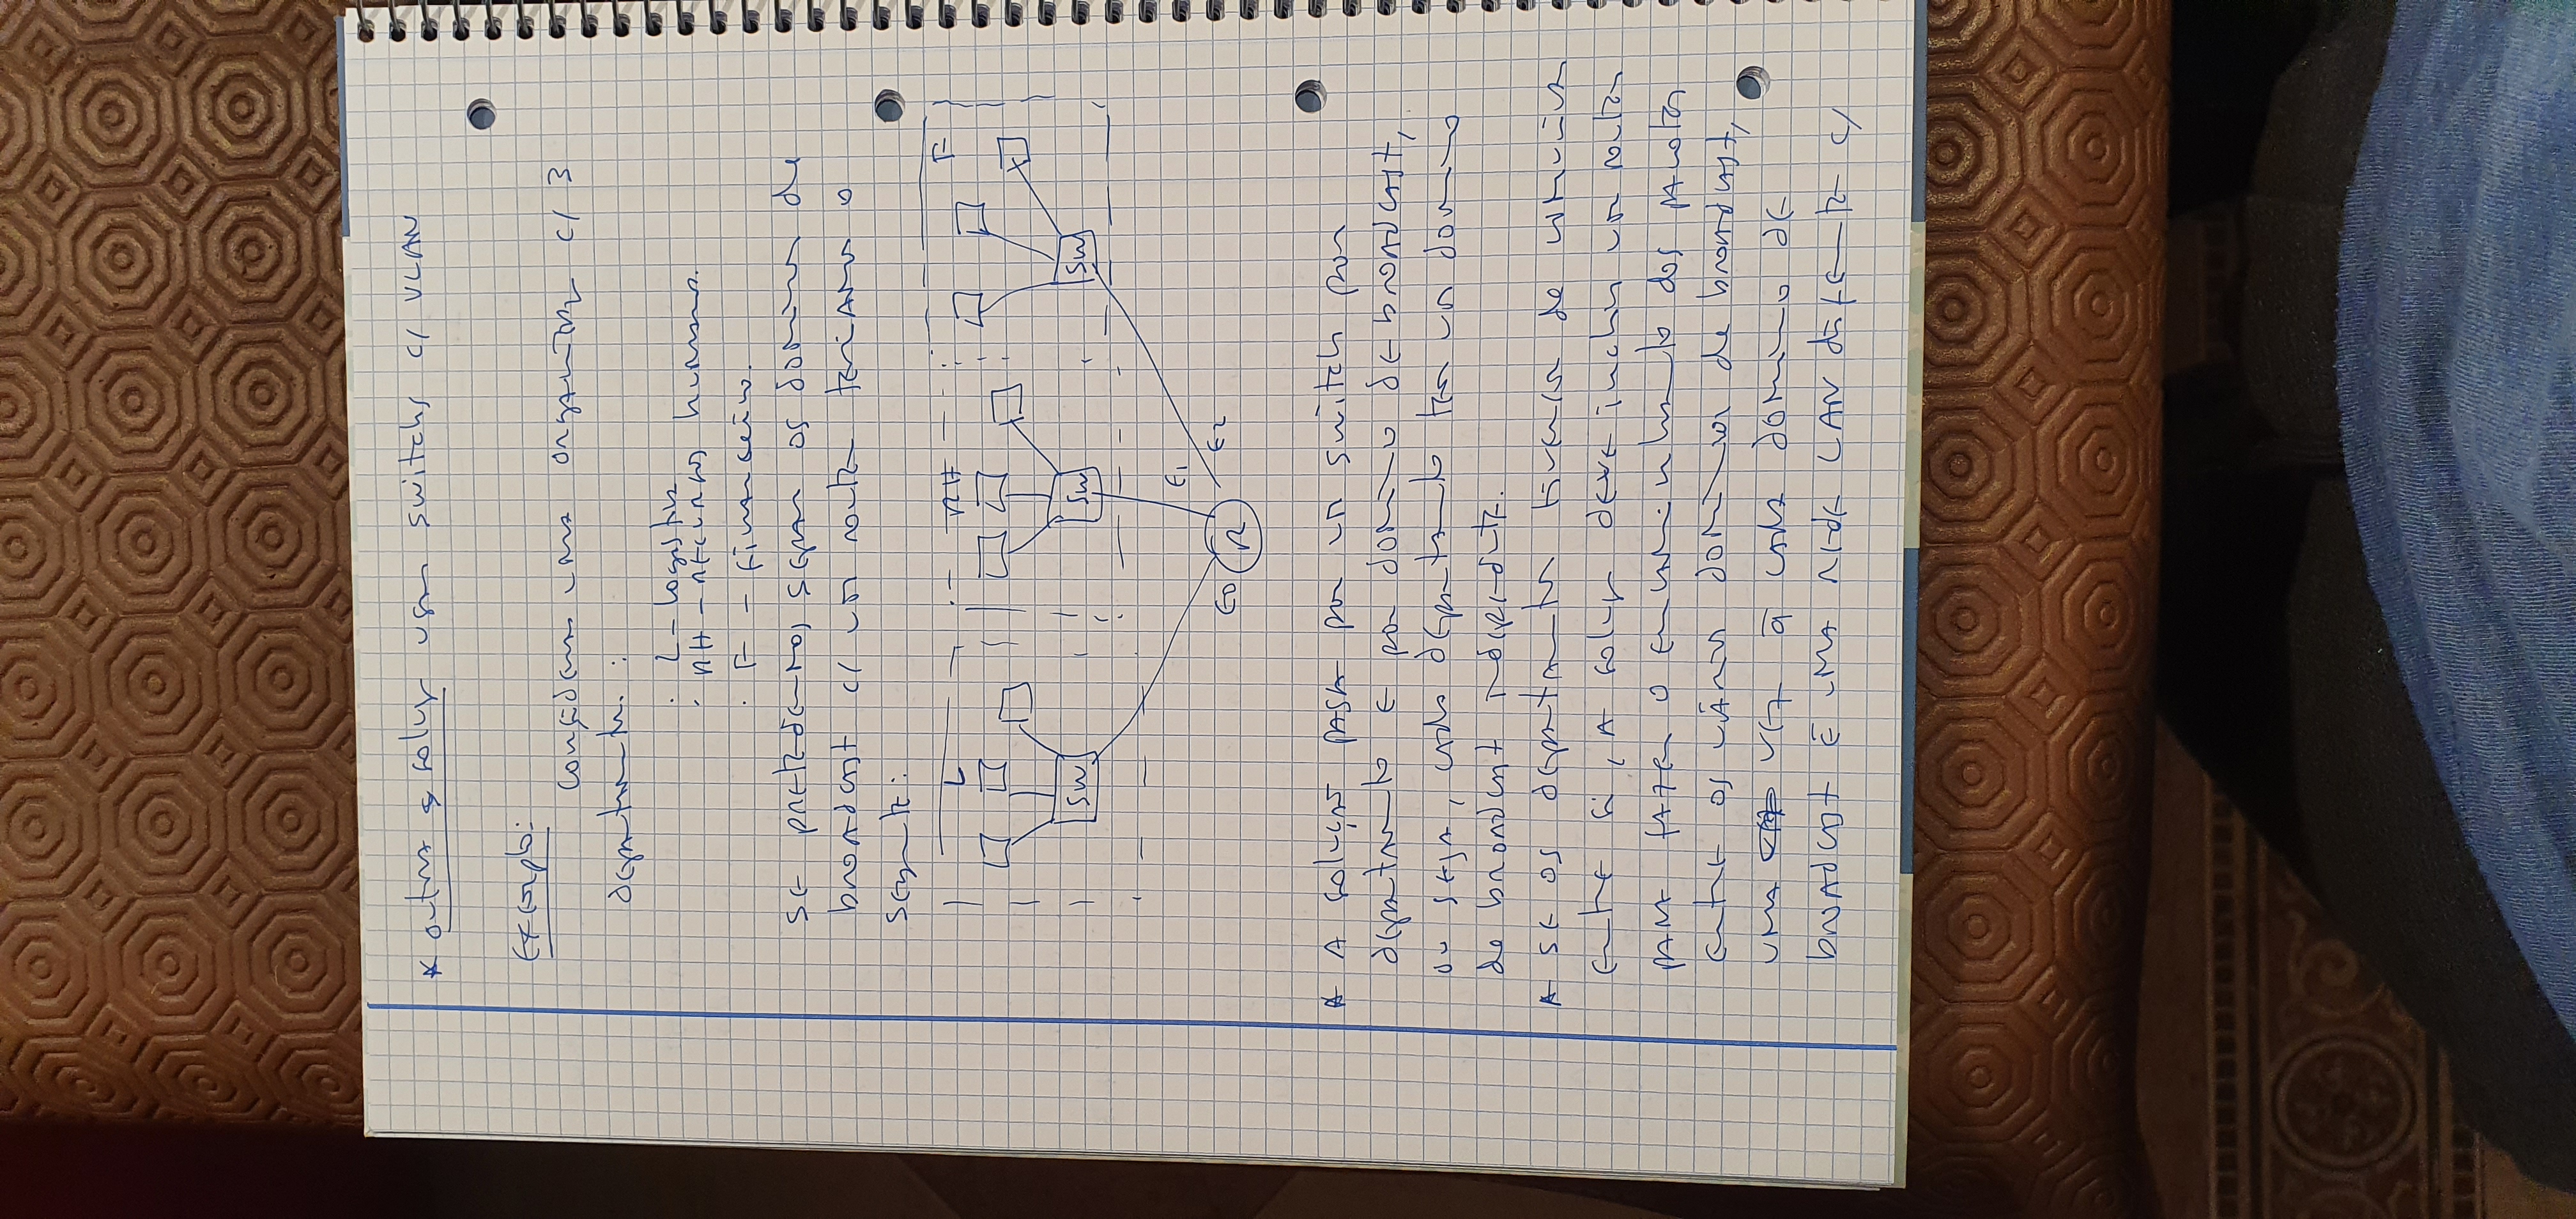 * outra solução usar switchs c/ VLAN
Exemplo:
consideremos uma organização c/ 3
departamentos:
· L - logistica
· RH - recursos humanos.
· F - financeiro.
se pretendermos separar os dominios de
broadcast c/ um router teriamos o
seguinte:
L RH F
SW SW SW
E1
E0 R E2
* A solução passa por um switch por
departamento e por dominio de broadcast,
ou seja, cada departamento tem um dominio
de broadcast independente.
* se os departamentos tiverem de comunicar
entre si, a solução deve incluir um router
para fazer o encaminhamento dos pacotes
entre os vários dominios de broadcast,
uma vez q cada dominio de
broadcast é uma rede LAN diferente c/